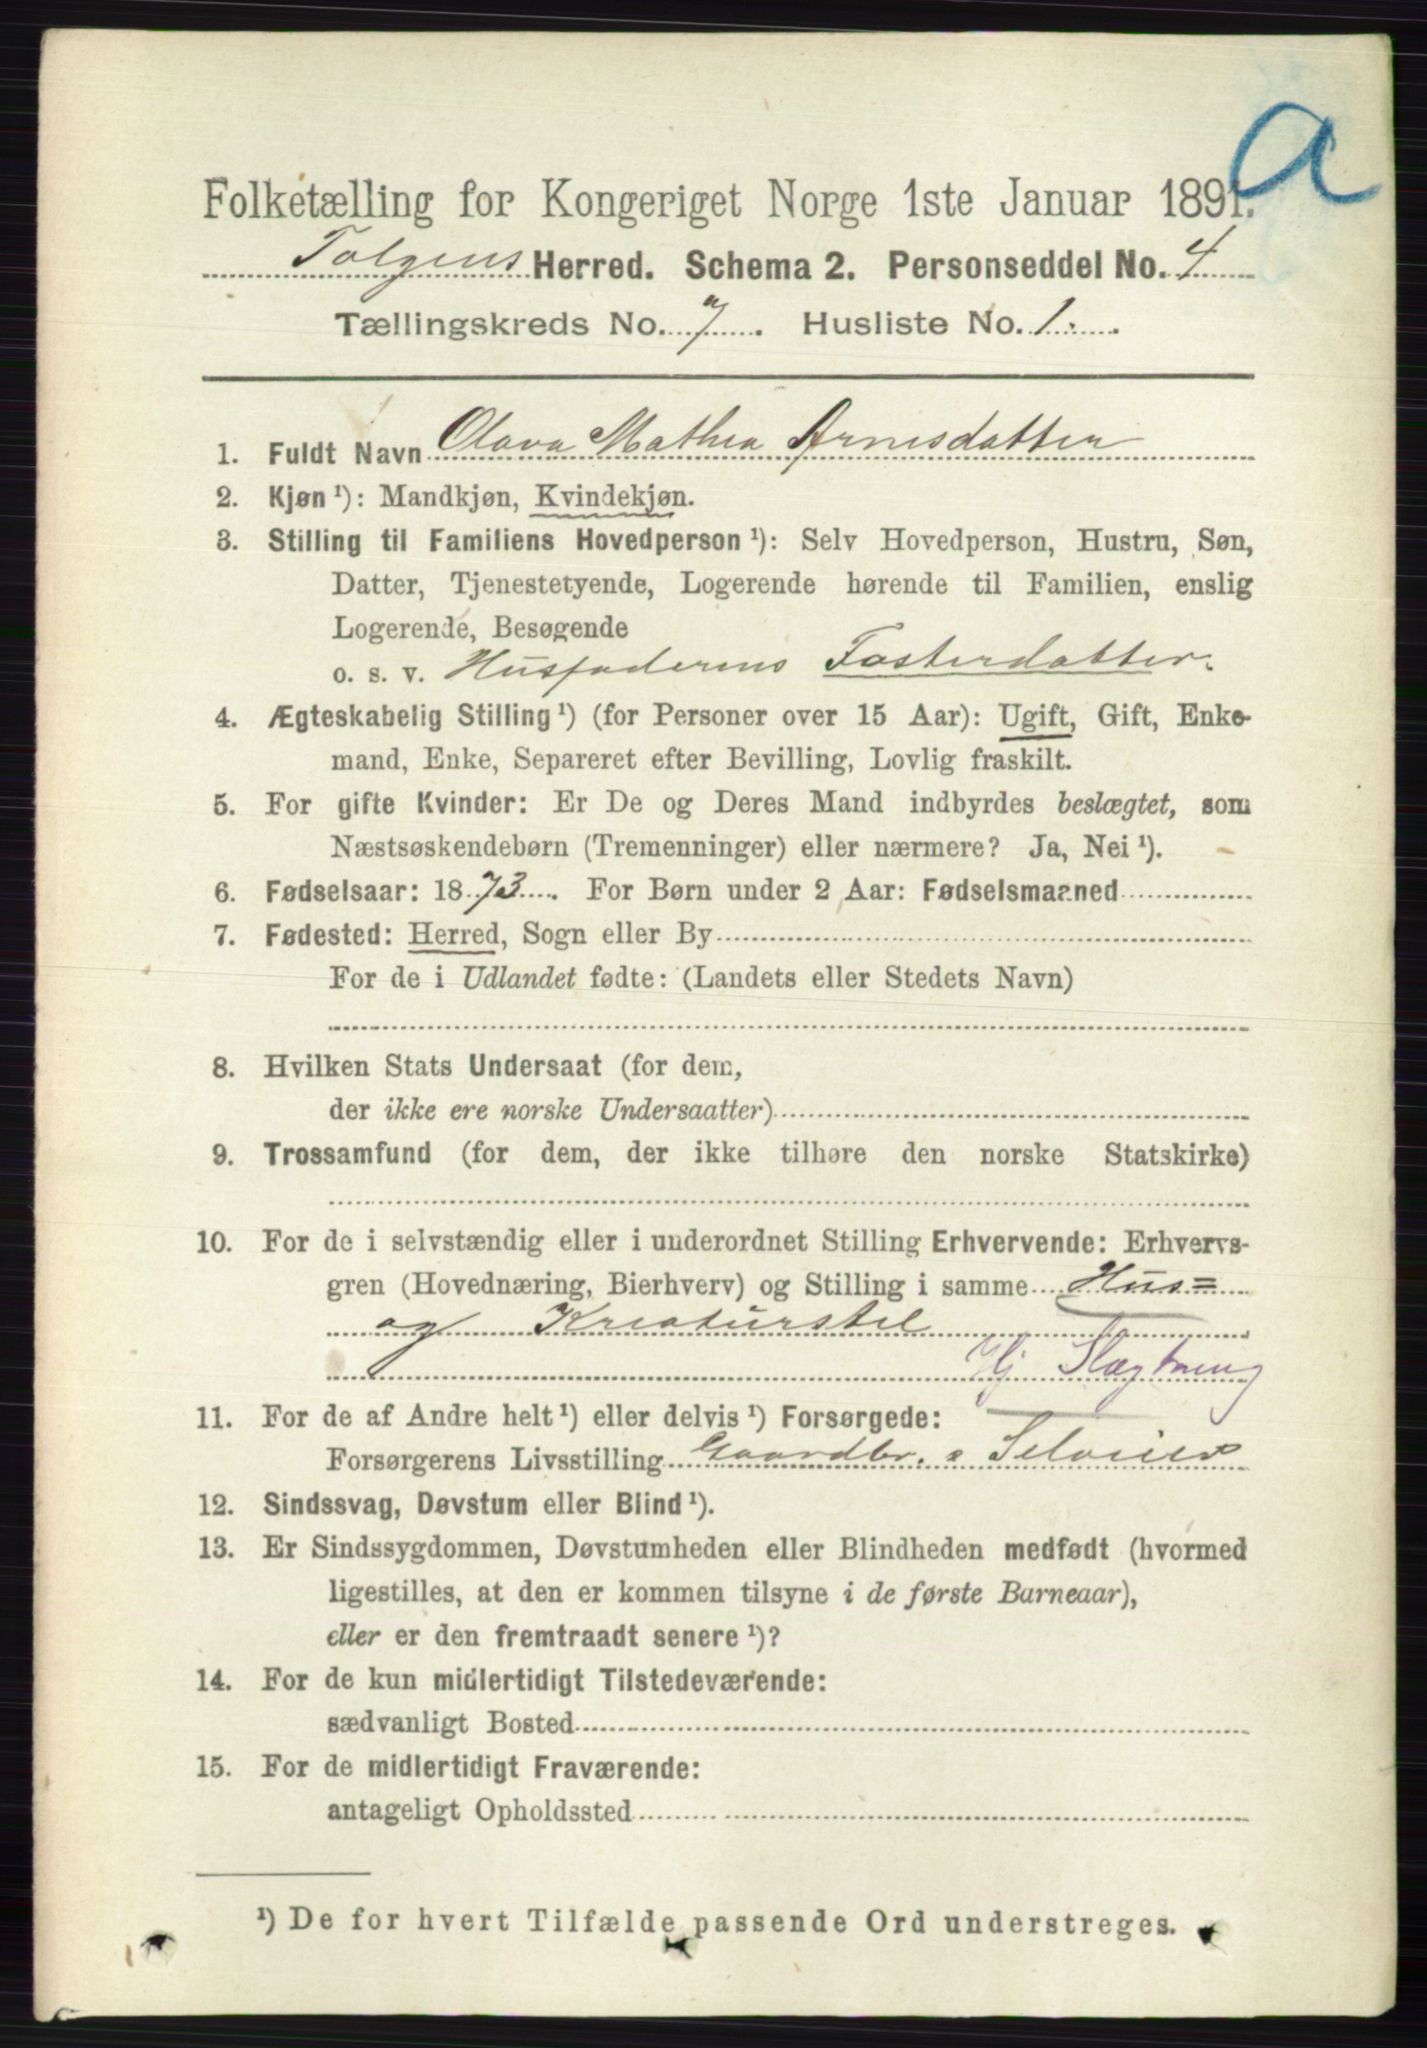 a
Folketælling for Kongeriget Norge 1ste Januar 1891.
Tolgens Herred. Schema 2. Personseddel No. 4
Tællingskreds No. 7. Husliste No. 1.
1. Fuldt Navn Olava Mathea Arnesdatter
2. Kjøn ¹): Mandkjøn, Kvindekjøn.
3. Stilling til Familiens Hovedperson ¹): Selv Hovedperson, Hustru, Søn,
Datter, Tjenestetyende, Logerende hørende til Familien, enslig
Logerende, Besøgende
o. s. v. Husfaderens Fosterdatter.
4. Ægteskabelig Stilling ¹) (for Personer over 15 Aar): Ugift, Gift, Enke-
mand, Enke, Separeret efter Bevilling, Lovlig fraskilt.
5. For gifte Kvinder: Er De og Deres Mand indbyrdes beslægtet, som
Næstsøskendebørn (Tremenninger) eller nærmere? Ja, Nei ¹).
6. Fødselsaar: 1873. For Børn under 2 Aar: Fødselsmaaned
7. Fødested: Herred, Sogn eller By
For de i Udlandet fødte: (Landets eller Stedets Navn)
8. Hvilken Stats Undersaat (for dem,
der ikke ere norske Undersaatter)
9. Trossamfund (for dem, der ikke tilhøre den norske Statskirke)
10. For de i selvstændig eller i underordnet Stilling Erhvervende: Erhvervs-
gren (Hovednæring, Bierhverv) og Stilling i samme Hus=
og Kreaturstel
Hj Slægtning
11. For de af Andre helt ¹) eller delvis ¹) Forsørgede:
Forsørgerens Livsstilling Gaardbr. Seleier
12. Sindssvag, Døvstum eller Blind ¹).
13. Er Sindssygdommen, Døvstumheden eller Blindheden medfødt (hvormed
ligestilles, at den er kommen tilsyne i de første Barneaar),
eller er den fremtraadt senere ¹)?
14. For de kun midlertidigt Tilstedeværende:
sædvanligt Bosted
15. For de midlertidigt Fraværende:
antageligt Opholdssted
¹) De for hvert Tilfælde passende Ord understreges.